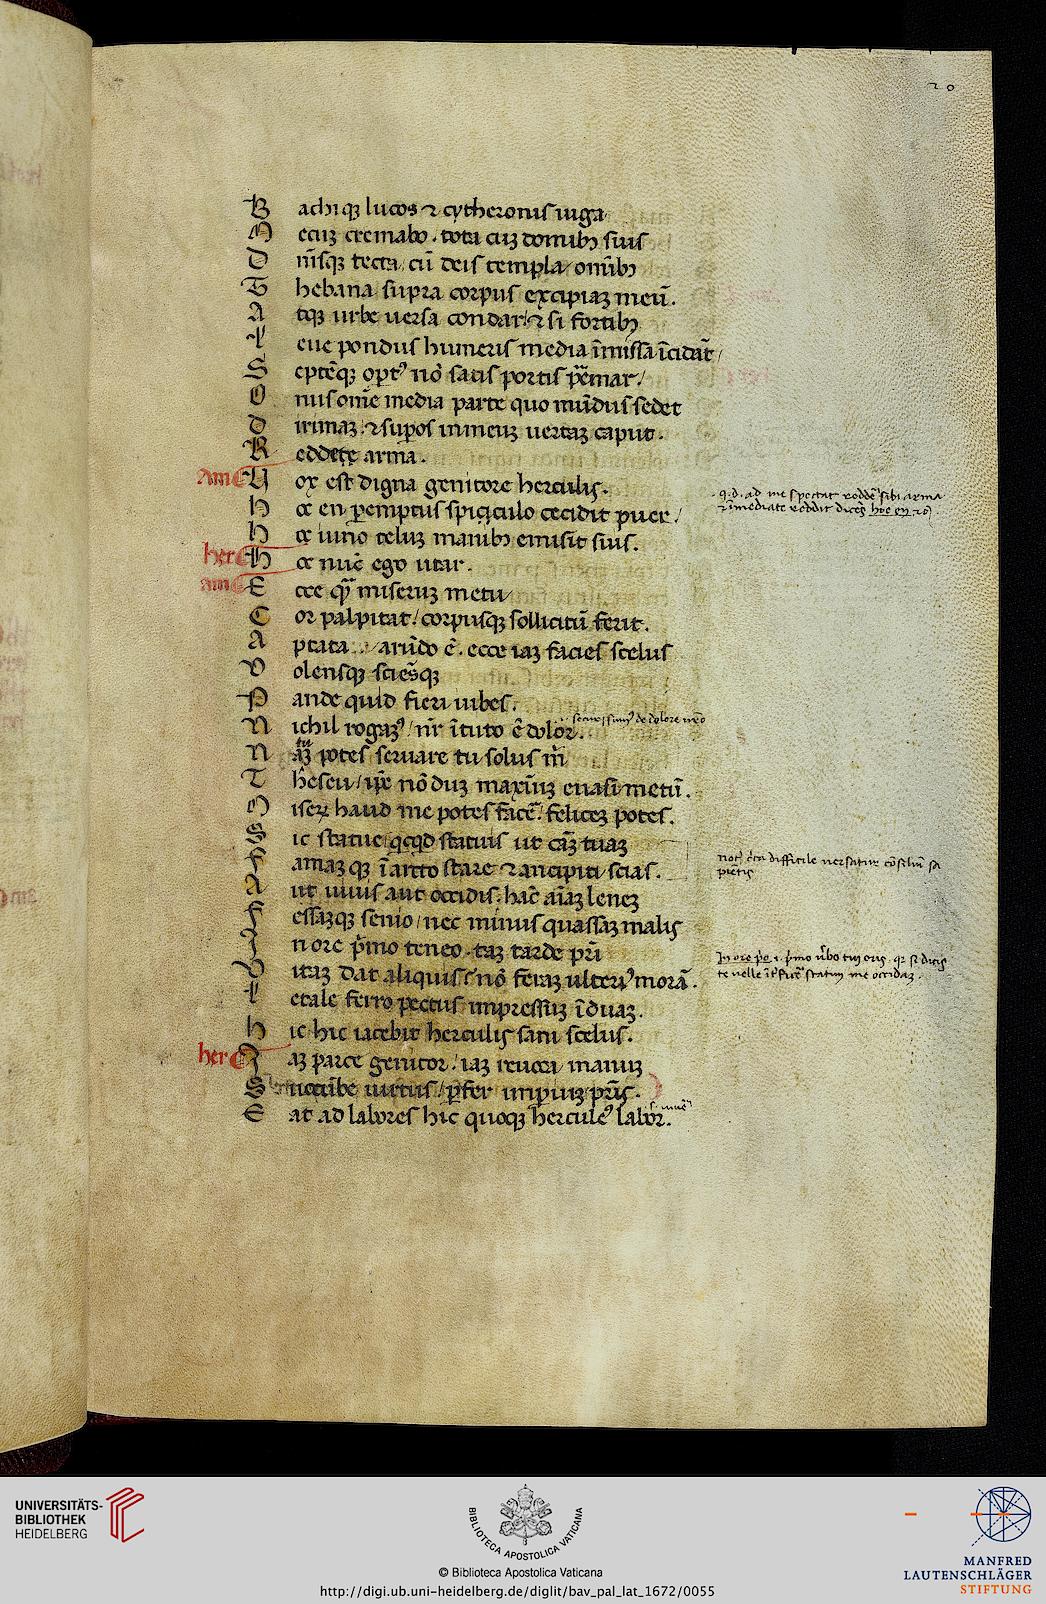 20
B achiqꝫ lucos ⁊ cytheronis iuga
M ecuꝫ cremabo. tota cuꝫ domibꝫ suis
D nisqꝫ tecta / cū deis templa / omībꝫ
T hebana supra corpus excipiaꝫ meū.
A tqꝫ urbe uersa condar / ⁊ si fortibꝫ
L eue pondus humeris media īmissa īcidāt /
S eptēqꝫ opꝰtꝰ nō satis portis p̄mar /
O nus om̄e media parte quo mūdus sedet
D irimaꝫ / ⁊ supos in meuꝫ uertaꝫ caput.
R eddete arma.
am U ox est digna genitore herculis.
H oc en pemptus spiculo cecidit puer /
H oc iuno teluꝫ manibꝫ emisit suis.
her H oc nūc ego utar.
am E cce qͣꝫ miseruꝫ metu
C or palpitat / corpusqꝫ sollicitū ferit.
A ptata / arūdo ē. ecce iaꝫ facies scelus
V olensqꝫ sciēsqꝫ
P ande quid fieri iubes.
N ichil rogaꝫꝰ / nr̄ ī tuto ē dolor.
N atū potes seruare tu solus m̄
T heseu / ip̄e nō duꝫ maximuꝫ euasi metū.
M iseꝝ haud me potes facē / feliceꝫ potes.
S ic statue qcqd statuis ut cāꝫ tuaꝫ
F amaꝫqꝫ ī arcto stare ⁊ ancipiti scias.
A ut uiuis aut occidis. hāc aīaꝫ leueꝫ
F essaꝫqꝫ senio / nec minus quassaꝫ malis
I n ore p̄mo teneo. taꝫ tarde pr̄i
V itaꝫ dat aliquis / nō feraꝫ ulteriꝰ morā.
L etale ferro pectus impressuꝫ īduaꝫ.
H ic hic iacebit herculis sani scelus.
her I aꝫ parce genitor / iaꝫ reuoca manuꝫ
S uccūbe uirtus / pfer imperiuꝫ pr̄is.
E at ad labores hic quoqꝫ herculeꝰ labor.
q. d. ad me spectat reddē sibi arma
⁊ īmediate reddit dicēs hoc en ⁊c
difficile uersatur cōsiliū
te uelle statiꝫ me occidaꝫ.
UNIVERSITÄTS-
BIBLIOTHEK
HEIDELBERG
BIBLIOTECA APOSTOLICA VATICANA
© Biblioteca Apostolica Vaticana
http://digi.ub.uni-heidelberg.de/diglit/bav_pal_lat_1672/0055
MANFRED
LAUTENSCHLÄGER
STIFTUNG